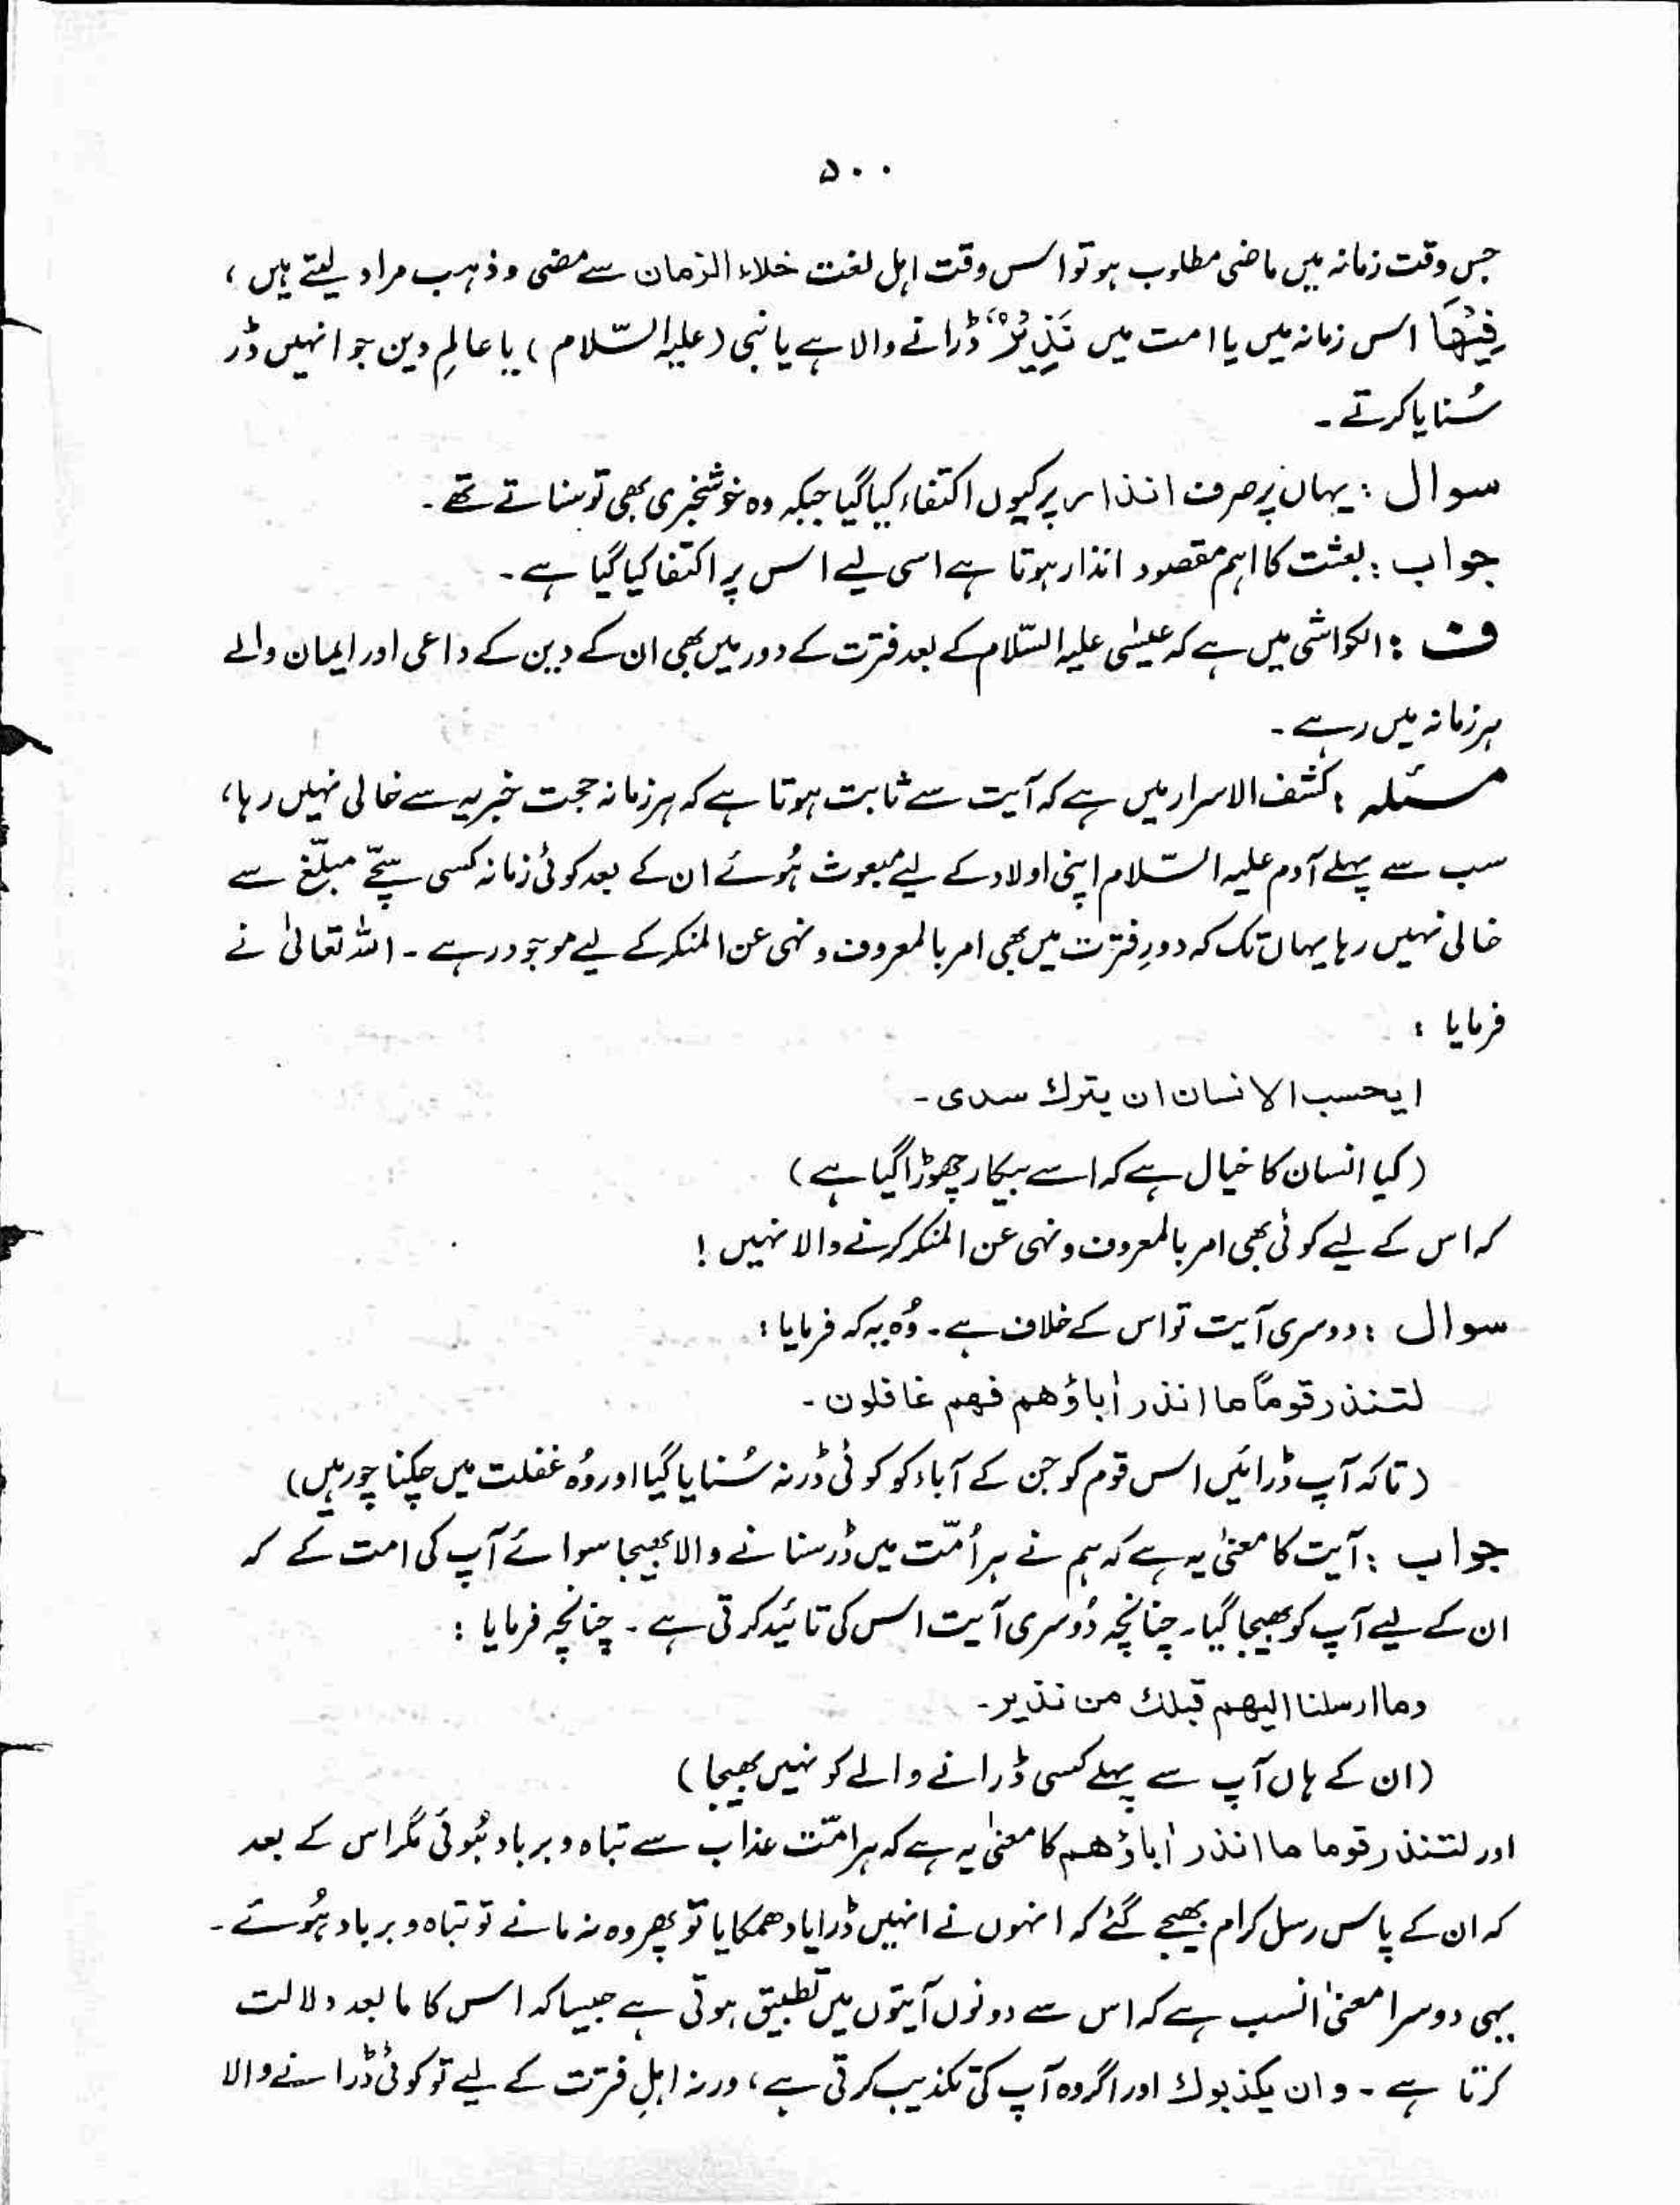 ۵۰۰
جس وقت زمانہ میں ماضی مطلوب ہو تو اس وقت اہل لغت خلاء الزمان سے مضی و ذہب مراد لیتے ہیں ،
فِیْھَا اس زمانہ میں یا امت میں نَذِیْرٌ ڈرانے والا ہے یا نبی (علیہ السّلام) یا عالمِ دین جو انہیں ڈر
سُنایا کرتے ۔
سوال : یہاں پر صرف انذار پر کیوں اکتفاء کیا گیا جبکہ وہ خوشخبری بھی تو سناتے تھے ۔
جواب : بعثت کا اہم مقصود انذار ہوتا ہے اسی لیے اس پر اکتفا کیا گیا ہے ۔
ف : الکواشی میں ہے کہ عیسٰی علیہ السّلام کے بعد فترت کے دور میں بھی ان کے دین کے داعی اور ایمان والے
ہر زمانہ میں رہے ۔
مسئلہ : کشف الاسرار میں ہے کہ آیت سے ثابت ہوتا ہے کہ ہر زمانہ حجت خبریہ سے خالی نہیں رہا ،
سب سے پہلے آدم علیہ السّلام اپنی اولاد کے لیے مبعوث ہُوئے ان کے بعد کوئی زمانہ کسی سچّے مبلّغ سے
خالی نہیں رہا یہاں تک کہ دورِ فترت میں بھی امر بالمعروف و نہی عن المنکر کے لیے موجود رہے ۔ اللہ تعالیٰ نے
فرمایا :
ایحسب الانسان ان یترك سدی ۔
(کیا انسان کا خیال ہے کہ اسے بیکار چھوڑا گیا ہے)
کہ اس کے لیے کوئی بھی امر بالمعروف و نہی عن المنکر کرنے والا نہیں !
سوال : دوسری آیت تو اس کے خلاف ہے ۔ وُہ یہ کہ فرمایا :
لتنذر قوماً ما انذر اٰباؤھم فھم غافلون ۔
(تاکہ آپ ڈرائیں اس قوم کو جن کے آباء کو کوئی ڈر نہ سُنایا گیا اور وُہ غفلت میں چکنا چور ہیں)
جواب : آیت کا معنیٰ یہ ہے کہ ہم نے ہر اُمّت میں ڈر سنانے والا بھیجا سوائے آپ کی امت کے کہ
ان کے لیے آپ کو بھیجا گیا ۔ چنانچہ دُوسری آیت اس کی تائید کرتی ہے ۔ چنانچہ فرمایا :
وما ارسلنا الیھم قبلك من نذیر ۔
(ان کے ہاں آپ سے پہلے کسی ڈرانے والے کو نہیں بھیجا)
اور لتنذر قوما ما انذر اٰباؤھم کا معنیٰ یہ ہے کہ ہر امّت عذاب سے تباہ و برباد ہُوئی مگر اس کے بعد
کہ ان کے پاس رسل کرام بھیجے گئے کہ انہوں نے انہیں ڈرایا دھمکایا تو پھر وہ نہ مانے تو تباہ و برباد ہُوئے ۔
یہی دوسرا معنیٰ انسب ہے کہ اس سے دونوں آیتوں میں تطبیق ہوتی ہے جیسا کہ اس کا مابعد دلالت
کرتا ہے ۔ و ان یکذبوك اور اگر وہ آپ کی تکذیب کرتی ہے ، ورنہ اہلِ فترت کے لیے تو کوئی ڈرانے والا